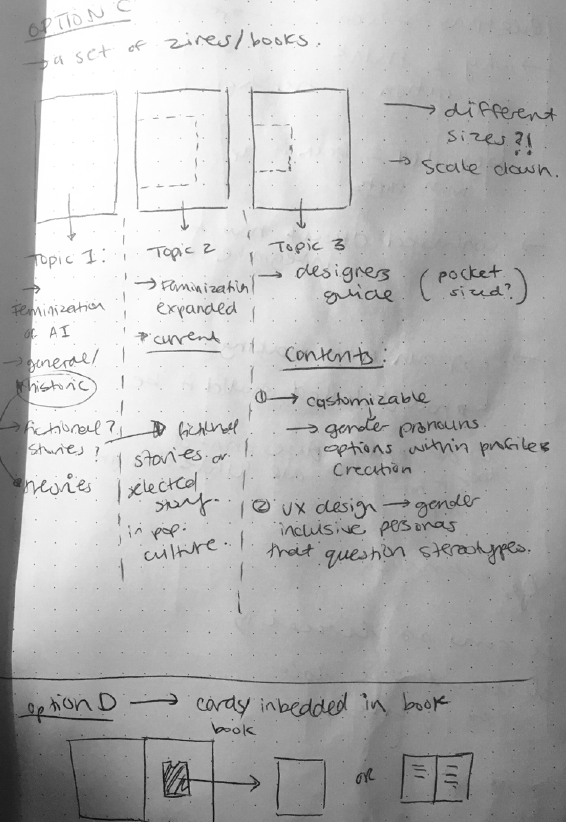 OPTION C
→ a set of zines/books.
→ different
sizes?!
→ scale down.
Topic 1:
→
Feminization
of AI
→ general/
historic
→ fictional?
stories?
movies
Topic 2
→ Feminization
expanded
→ current
fictional
stories or
selected
story.
in pop.
culture.
Topic 3
→ designers
guide
(pocket
sized?)
Contents:
① → customizable
→ gender pronouns
options within profiles
creation
② UX design → gender
inclusive personas
that question stereotypes.
option D → cards inbedded in book
book
or